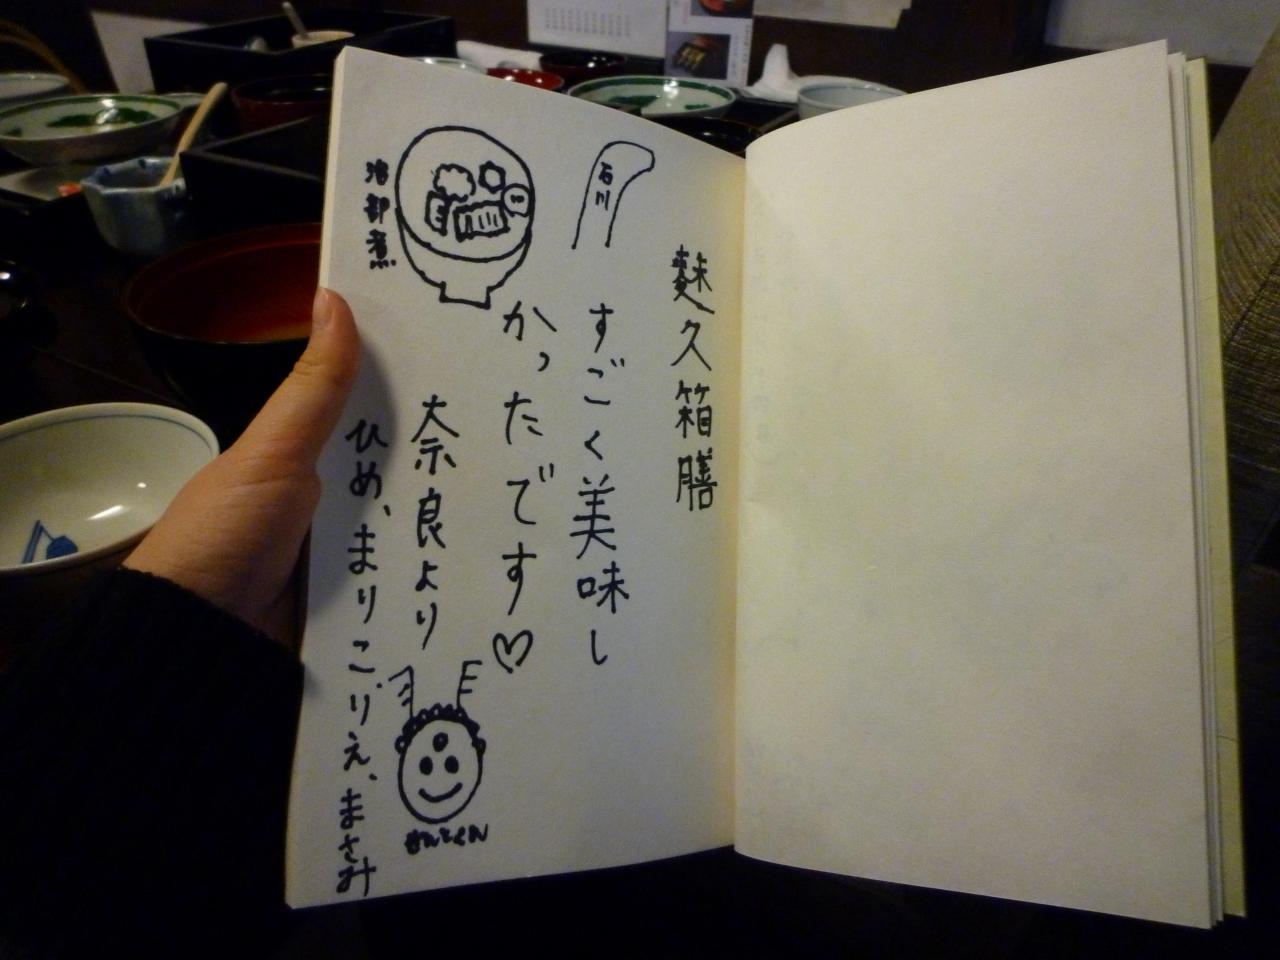 麩久箱膳
石川
すごく美味し
かったです♡
治部煮
奈良より
ひめ、まりこ、りえ、まさみ
せんとくん